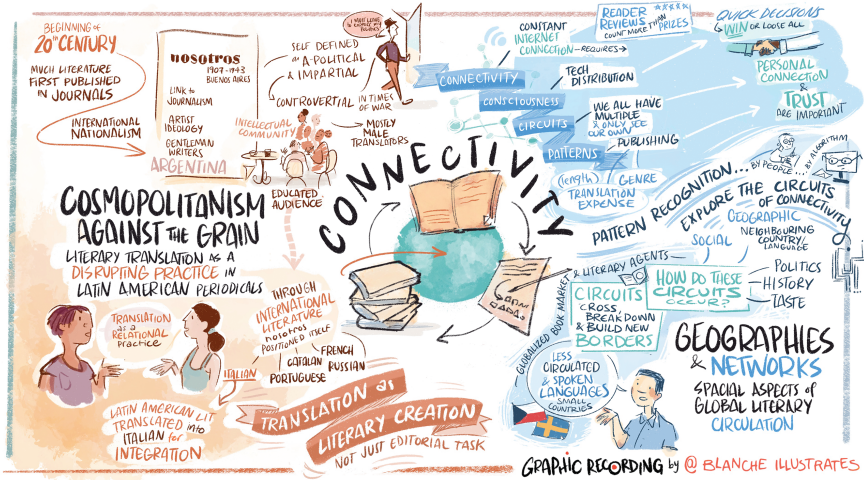 BEGINNING OF
20TH CENTURY
MUCH LITERATURE
FIRST PUBLISHED
IN JOURNALS
INTERNATIONAL
NATIONALISM
nosotros
1907-1943
BUENOS AIRES
LINK to
JOURNALISM
ARTIST
IDEOLOGY
GENTLEMAN
WRITERS
ARGENTINA
SELF DEFINED
as
A-POLITICAL
& IMPARTIAL
CONTROVERTIAL
IN TIMES
OF WAR
INTELLECTUAL
COMMUNITY
MOSTLY
MALE
TRANSLATORS
EDUCATED
AUDIENCE
COSMOPOLITANISM
AGAINST THE GRAIN
LITERARY TRANSLATION as A
DISRUPTING PRACTICE IN
LATIN AMERICAN PERIODICALS
TRANSLATION
as a
RELATIONAL
PRACTICE
THROUGH
INTERNATIONAL
LITERATURE
nosotros
POSITIONED ITSELF
FRENCH
RUSSIAN
CATALAN
PORTUGUESE
ITALIAN
LATIN AMERICAN LIT
TRANSLATED into
ITALIAN for
INTEGRATION
TRANSLATION as
LITERARY CREATION
NOT JUST EDITORIAL TASK
CONNECTIVITY
CONSTANT
INTERNET
CONNECTION
REQUIRES
READER
REVIEWS
COUNT MORE THAN
PRIZES
QUICK DECISIONS
WIN or LOOSE ALL
PERSONAL
CONNECTION
&
TRUST
ARE IMPORTANT
CONNECTIVITY
CONSCIOUSNESS
CIRCUITS
PATTERNS
TECH
DISTRIBUTION
WE ALL HAVE
MULTIPLE
& ONLY SEE
OUR OWN
PUBLISHING
(length)
GENRE
TRANSLATION
EXPENSE
PATTERN RECOGNITION...
BY PEOPLE...
BY ALGORITHM
EXPLORE THE CIRCUITS
OF CONNECTIVITY
GEOGRAPHIC
NEIGHBOURING
COUNTRY/
LANGUAGE
SOCIAL
POLITICS
HISTORY
TASTE
HOW DO THESE
CIRCUITS
OCCUR?
GLOBALIZED BOOK MARKET
& LITERARY AGENTS
CIRCUITS
CROSS
BREAKDOWN
& BUILD NEW
BORDERS
LESS
CIRCULATED
& SPOKEN
LANGUAGES
SMALL
COUNTRIES
GEOGRAPHIES
& NETWORKS
SPACIAL ASPECTS of
GLOBAL LITERARY
CIRCULATION
GRAPHIC RECORDING by @ BLANCHE ILLUSTRATES